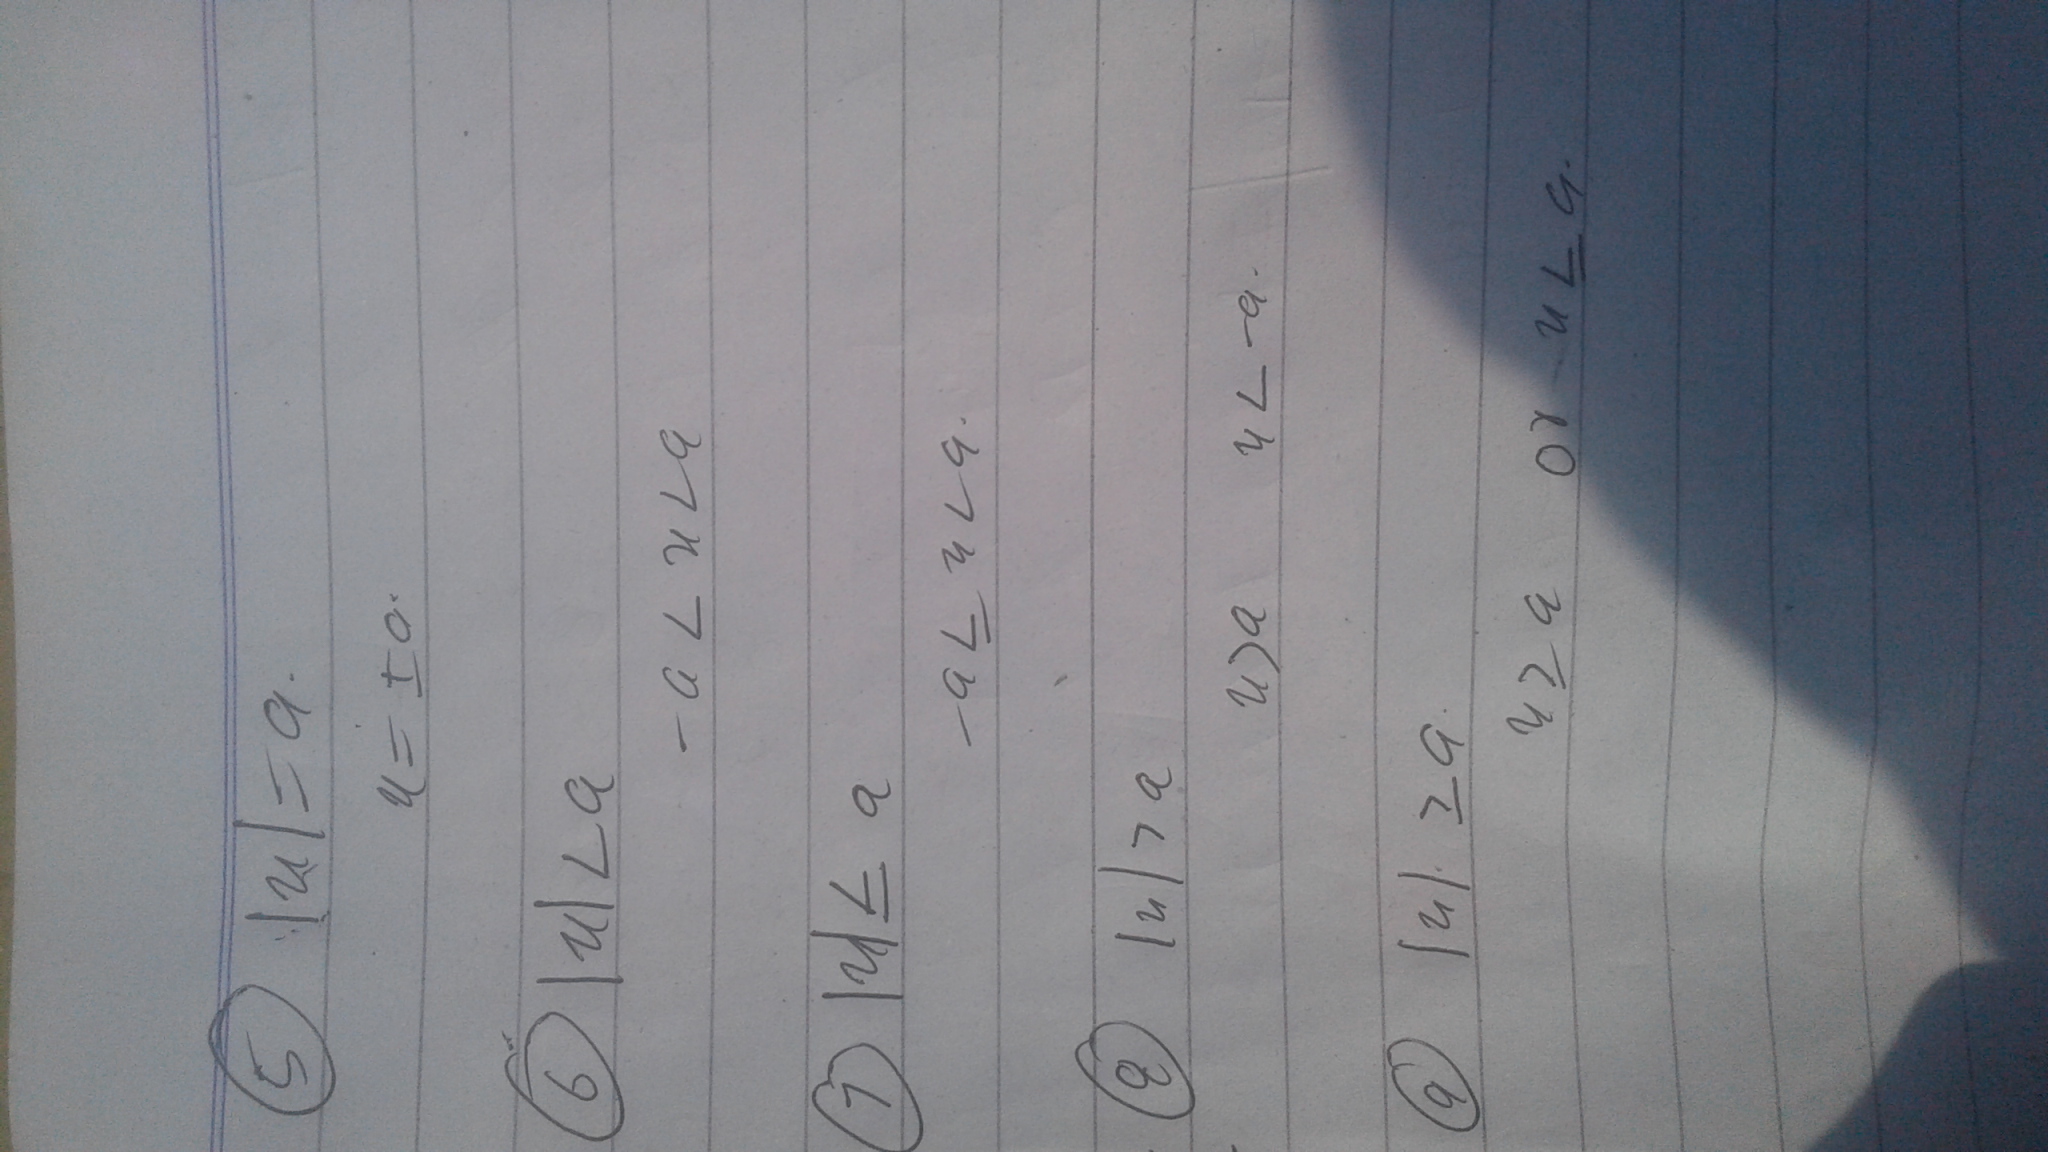 5 |x| = a.
x = ± a.
6 |x| < a
-a < x < a
7 |x| ≤ a
-a ≤ x < a.
8 |x| > a
x > a x < -a.
9 |x| ≥ a.
x ≥ a or x ≤ a.